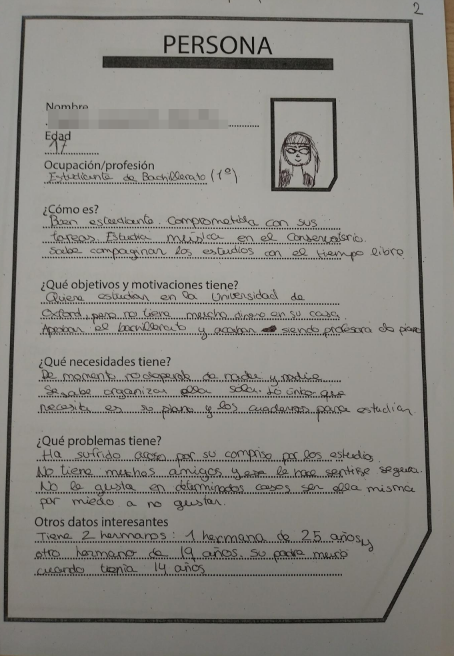 2
PERSONA
Nombre
Edad
17
Ocupación/profesión
Estudiante de Bachillerato (1º)
¿Cómo es?
Buen estudiante. Comprometida con sus
tareas. Estudia música en el conservatorio.
Sabe compaginar los estudios con el tiempo libre
¿Qué objetivos y motivaciones tiene?
Quiere estudiar en la Universidad de
Oxford, pero no tiene mucho dinero en su casa.
Aprobar el bachillerato y acabar siendo profesora de piano
¿Qué necesidades tiene?
De momento no depende de nadie y
Se sabe organizar ella sola. Lo único que
necesita es su piano y los cuadernos para estudiar.
¿Qué problemas tiene?
Ha sufrido acoso por su compriso por los estudio
No tiene muchos amigos y le hace sentirse segura.
No le gusta en determinados casos ser ella misma
por miedo a no gustar.
Otros datos interesantes
Tiene 2 hermanos: 1 hermana de 25 años y
otro hermano de 19 años, su padre murió
cuando tenia 14 años